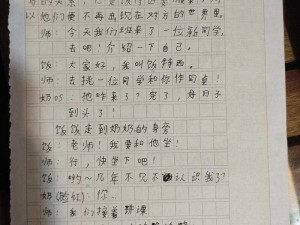 以他们便不再出现在对方的世界里。
师：今天我们班来了一位新同学，
去吧！介绍一下自己。
饭：大家好，我叫饭特西。
师：去挑一位同学和你作同桌！
奶OS：他咋来了？完了，好日子
到头了！
饭饭走到奶奶的身旁
饭：老师！我要和他坐！
师：行，快坐下吧！
饭：哟～几年不见不认识我了？
奶(脸红)：你！
师：我们接着讲课